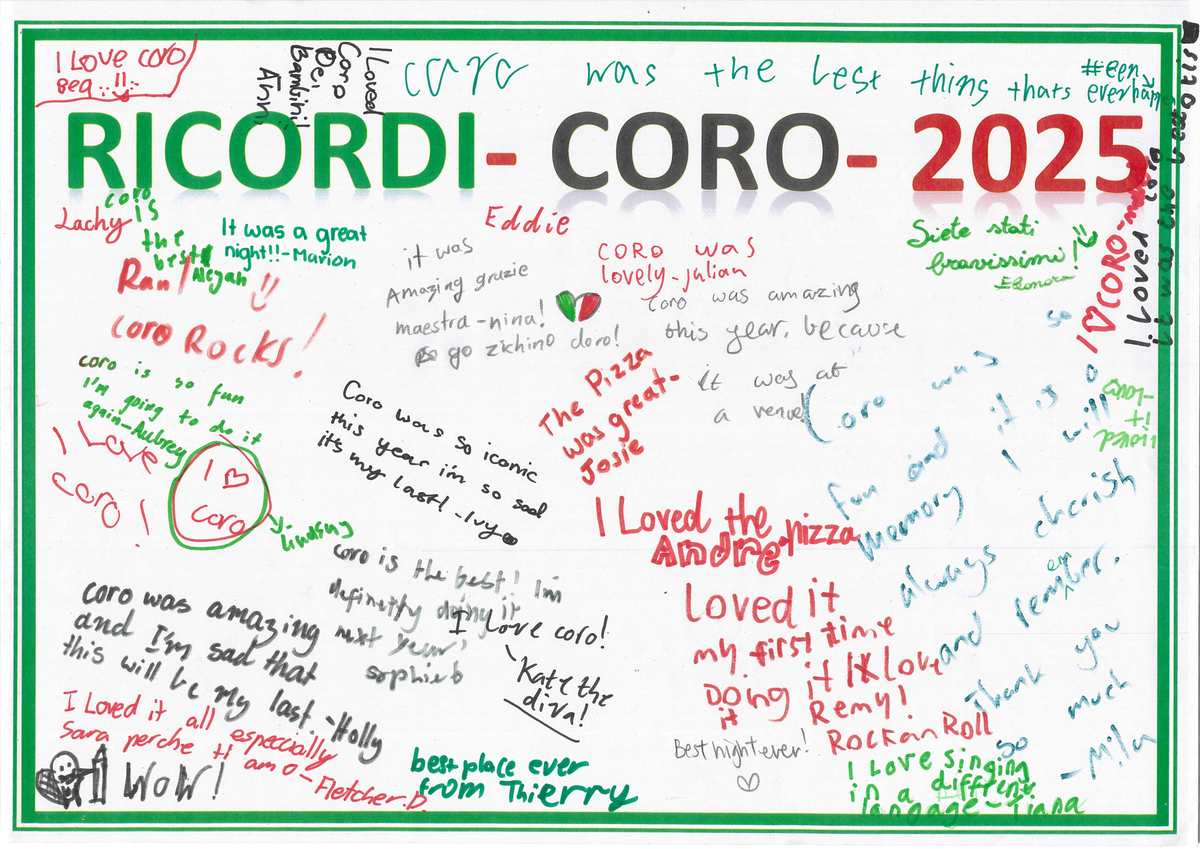 I Love coro
Bea
I Loved
Coro
Dei
Bambini!
Ann
coro was the best thing thats
#een
everhappe
RICORDI- CORO- 2025
Lachy
coro
is
the
best!
Megan
It was a great
night!!-Marion
Eddie
it was
Amazing grazie
maestra-nina!
so go zichino doro!
coro was
lovely-julian
Coro was amazing
this year. because
it was at
a venue
Siete stati
bravissimi!
Eleonora
I ♡ CORO-
I Loved coro
it was the best
Ran!
coro Rocks!
coro is so fun
I'm going to do it
again-Aubrey
I Love
coro!
I ♡
coro
-Lindsay
Coro was so iconic
this year im so sad
it's my last! -Ivy
The Pizza
was great-
Josie
I Loved the
pizza
Andre
Coro was so
fun and it is a
memory I will
always cherish
and remember.
Thank you
so much
-Mila
I loved
it-
coro is the best! I'm
definetly doing it
next year!
sophie b
I love coro!
\Kate the
diva!
coro was amazing
and I'm sad that
this will be my last -Holly
Loved it
my first time
Doing it I love
it Remy!
Rock in Roll
Best night ever!
♡
I Loved it all especially
Sara perche ti amo-
Fletcher.D.
WOW!
best place ever
from Thierry
I Love singing
in a diffrent
langage-Tiana